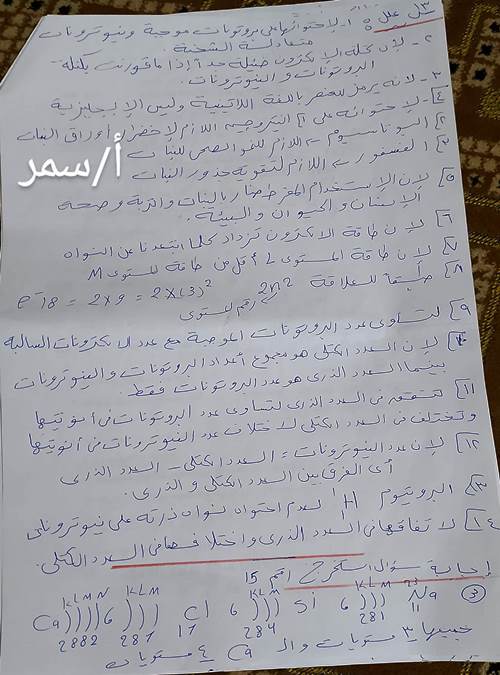 س٣ علل : ١- لاحتوائها على بروتونات موجبة ونيوترونات
متعادلة الشحنة .
٢- لأن كتلة الإلكترون ضئيلة جداً إذا ما قورنت بكتلة
البروتونات والنيوترونات .
٣- لأنه يرمز للعنصر باللغة اللاتينية وليس الإنجليزية
٤- لاحتوائه على ١] النيتروجين اللازم لاخضرار أوراق النبات
٢] البوتاسيوم ← اللازم للنمو الصحى للنبات
٣] الفسفور ← اللازم لتقوية جذور النبات
أ/سمر
٥] لأن الاستخدام المفرط ضار بالنبات والتربة وصحة
الإنسان والحيوان والبيئة .
٦] لأن طاقة الإلكترون تزداد كلما ابتعدنا عن النواه
٧] لأن طاقة المستوى L أقل من طاقة المستوى M
٨] طبقاً للعلاقة 2n² رقم المستوى 2×(3)² = 2×9 = 18 e⁻
٩] لتساوى عدد البروتونات الموجبة مع عدد الإلكترونات السالبة
١٠] لأن العدد الكتلى هو مجموع أعداد البروتونات والنيوترونات
بينما العدد الذرى هو عدد البروتونات فقط .
١١] تتفق فى العدد الذرى لتساوى عدد البروتونات فى أنويتها
وتختلف فى العدد الكتلى لاختلاف عدد النيوترونات فى أنويتها
١٢] لأن عدد النيوترونات = العدد الكتلى - العدد الذرى
أى الفرق بين العدد الكتلى والذرى .
١٣] البروتيوم ¹H لعدم احتواء نواة ذرته على نيوترونات
١٤] لاتفاقها فى العدد الذرى واختلافها فى العدد الكتلى .
إجابة سؤال استخرج رقم 15
KLMN KLM KLM KLM
③ Ca))))6 ))) Cl 6 ))) Si 6 ))) Na
2882 287 17 284 281 11
جميعها ٣ مستويات والـ Ca ٤ مستويات